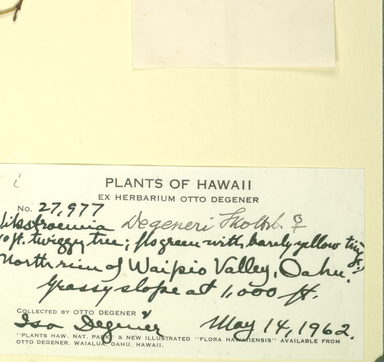 PLANTS OF HAWAII
EX HERBARIUM OTTO DEGENER
No. 27,977
Wikstroemia Degeneri Skottsb. ♀
10 ft. twiggy tree; fls green with barely yellow tinge.
North rim of Waipio Valley, Oahu.
Grassy slope at 1,000 ft.
COLLECTED BY OTTO DEGENER &
Isa Degener May 14, 1962.
"PLANTS HAW. NAT. PARK" & NEW ILLUSTRATED "FLORA HAWAIIENSIS" AVAILABLE FROM
OTTO DEGENER, WAIALUA, OAHU, HAWAII.